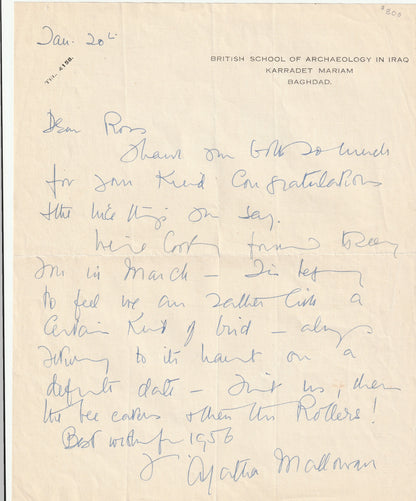 $300
Jan. 20th
TEL. 4158.
BRITISH SCHOOL OF ARCHAEOLOGY IN IRAQ
KARRADET MARIAM
BAGHDAD.
Dear Ross
Thank you both so much
for your kind Congratulations
& the nice things you say.
We're looking forward to seeing
you in March – I'm
to feel we are rather like a
certain kind of bird – always
returning to its haunt on a
definite date – First us, then
the bee eaters & then the Rollers!
Best wishes for 1956
Agatha Mallowan